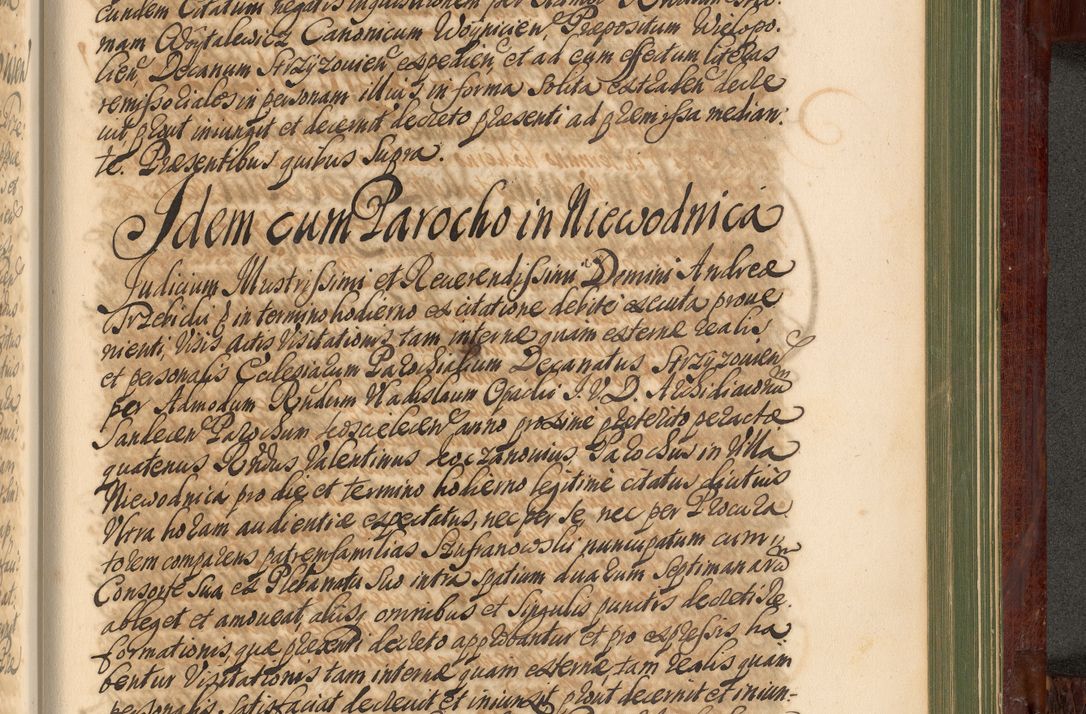 eundem Citatum
mam Woytalewicz Canonicum Woynicien, Præpositum Wielopo.
lien, Decanum Strzyzovien expedien, et ad eum effectum literas
remissoriales in personam illius in forma solita extraden decre
uit, prout iniungit et decernit decreto præsenti ad præmissa median:
te. Præsentibus quibus supra.
Idem cum Parocho in Niewodnica
Judicium Illustrissimi et Reuerendissimi Domini Andreæ
Trzebicki in termino hodierno ex citatione debite executa proue
nienti, Visis actis Visitationis tam internæ quam externæ realis
et personalis Ecclesiarum Parochialium Decanatus Strzyzovien
per Admodum Rndum Vladislaum Opacki J. V. D. Archidiaconum
Sandecen Parochum koscielecen anno proxime præterito peractæ
quatenus Rndus Valentinus koczanowius Parochus in Villa
Niewodnica pro die et termino hodierno legitime citatus diutius
Vltra horam audientiæ expectatus, nec per se, nec per Procura
torem comparens patremfamilias Szafranowski nuncupatum cum
Consorte sua ex Plebanatu suo intra spatium duarum septimanarum
ableget et amoueat, aliisq omnibus et singulis punctis decreti Re.
formationis quæ præsenti decreto approbantur et pro expressis ha
bentur Visitationis tam internæ quam externæ tam realis quam
personalis satisfaciat decreuit et iniunxit prout decernit et iniun-